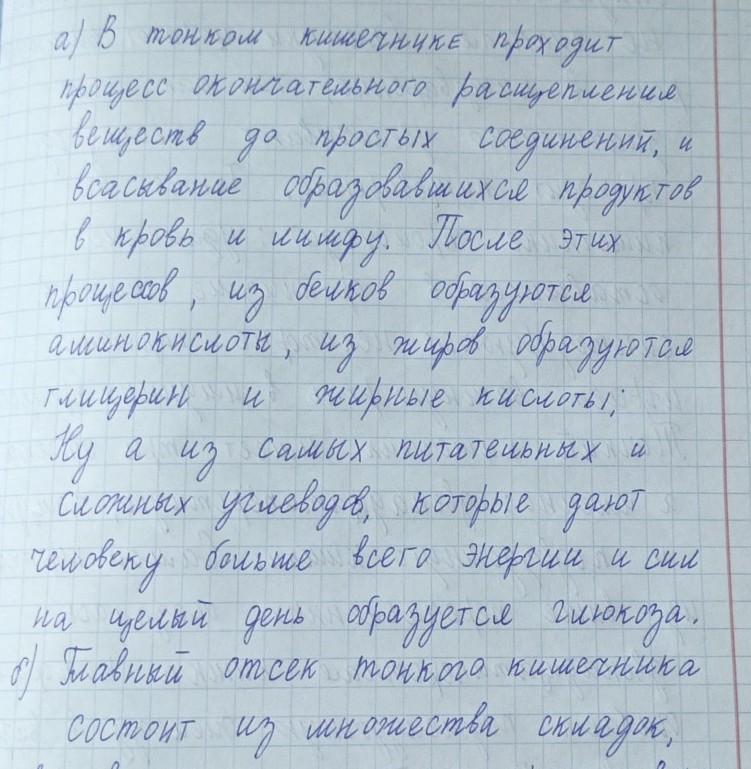 а) В тонком кишечнике проходит
процесс окончательного расщепления
веществ до простых соединений, и
всасывание образовавшихся продуктов
в кровь и лимфу. После этих
процессов, из белков образуются
аминокислоты, из жиров образуются
глицерин и жирные кислоты;
Ну а из самых питательных и
сложных углеводов, которые дают
человеку больше всего энергии и сил
на целый день образуется глюкоза.
б) Главный отсек тонкого кишечника
состоит из множества складок,